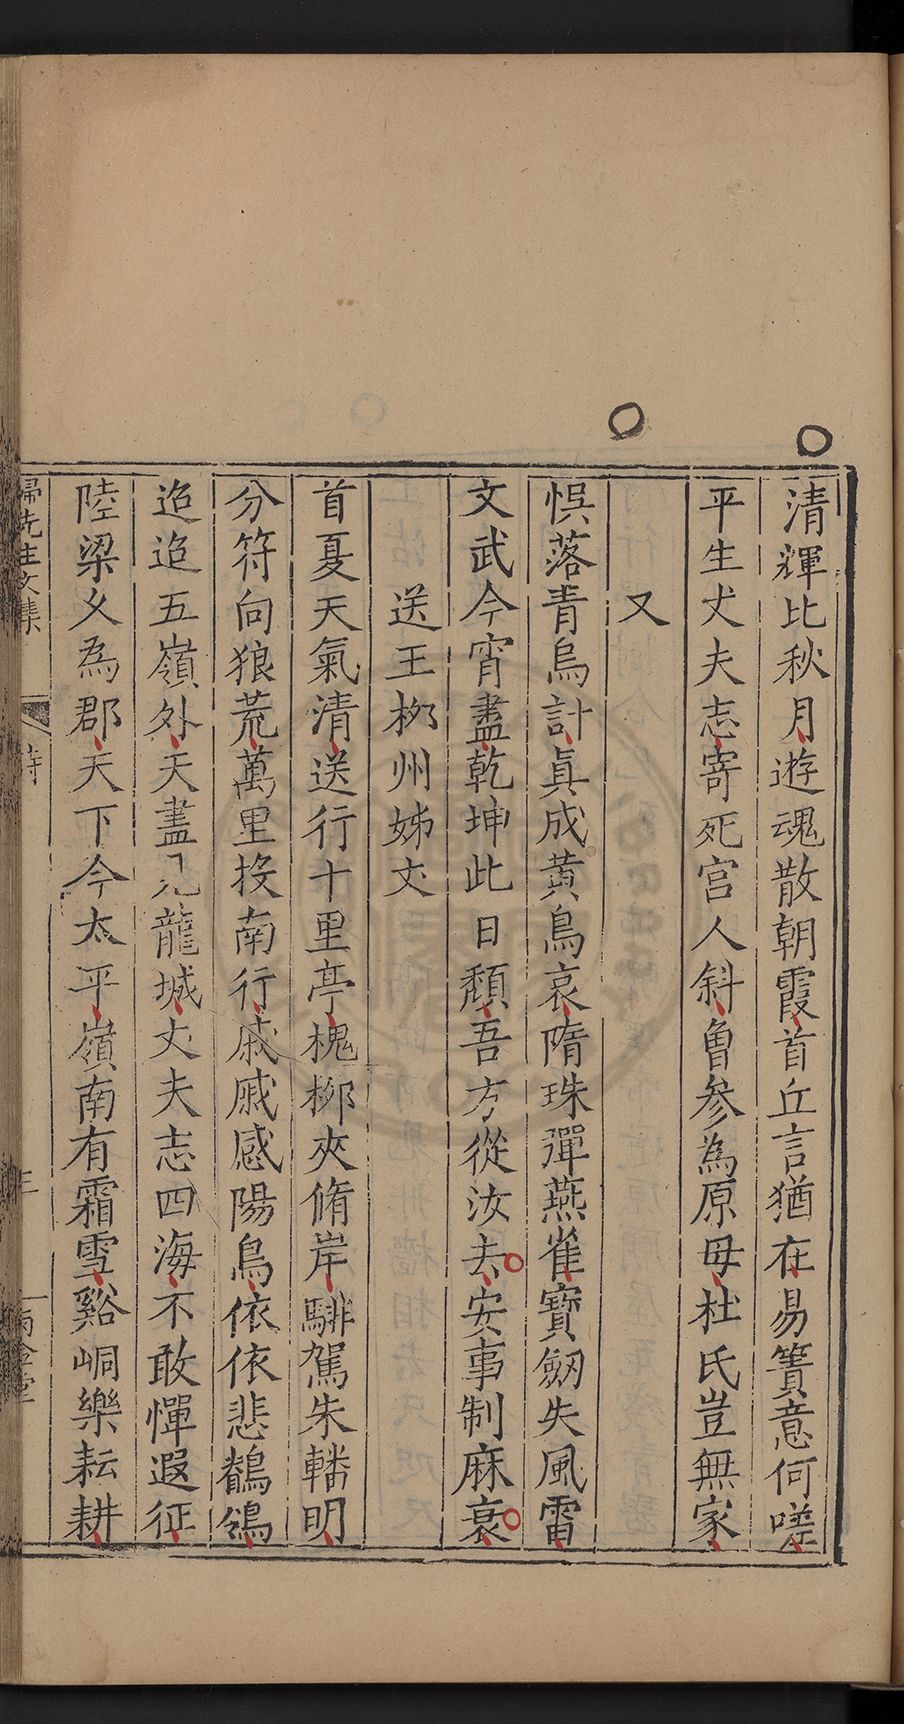 清輝比秋月遊魂散朝霞首丘言猶在易簀意何嗟
平生丈夫志寄死宫人斜魯參為原母杜氏豈無家
又
悞落青烏計真成黄鳥哀隋珠彈燕雀寶劒失風雷
文武今宵盡乾坤此日頽吾方從汝去安事制麻衰
送王栁州姊丈
首夏天氣清送行十里亭槐栁夾脩岸騑駕朱轓明
分符向狼荒萬里投南行戚戚感陽鳥依依悲鶺鴒
迢迢五嶺外天盡見龍城丈夫志四海不敢憚遐征
陸梁久為郡天下今太平嶺南有霜雪谿峒樂耘耕
歸先生文集
詩